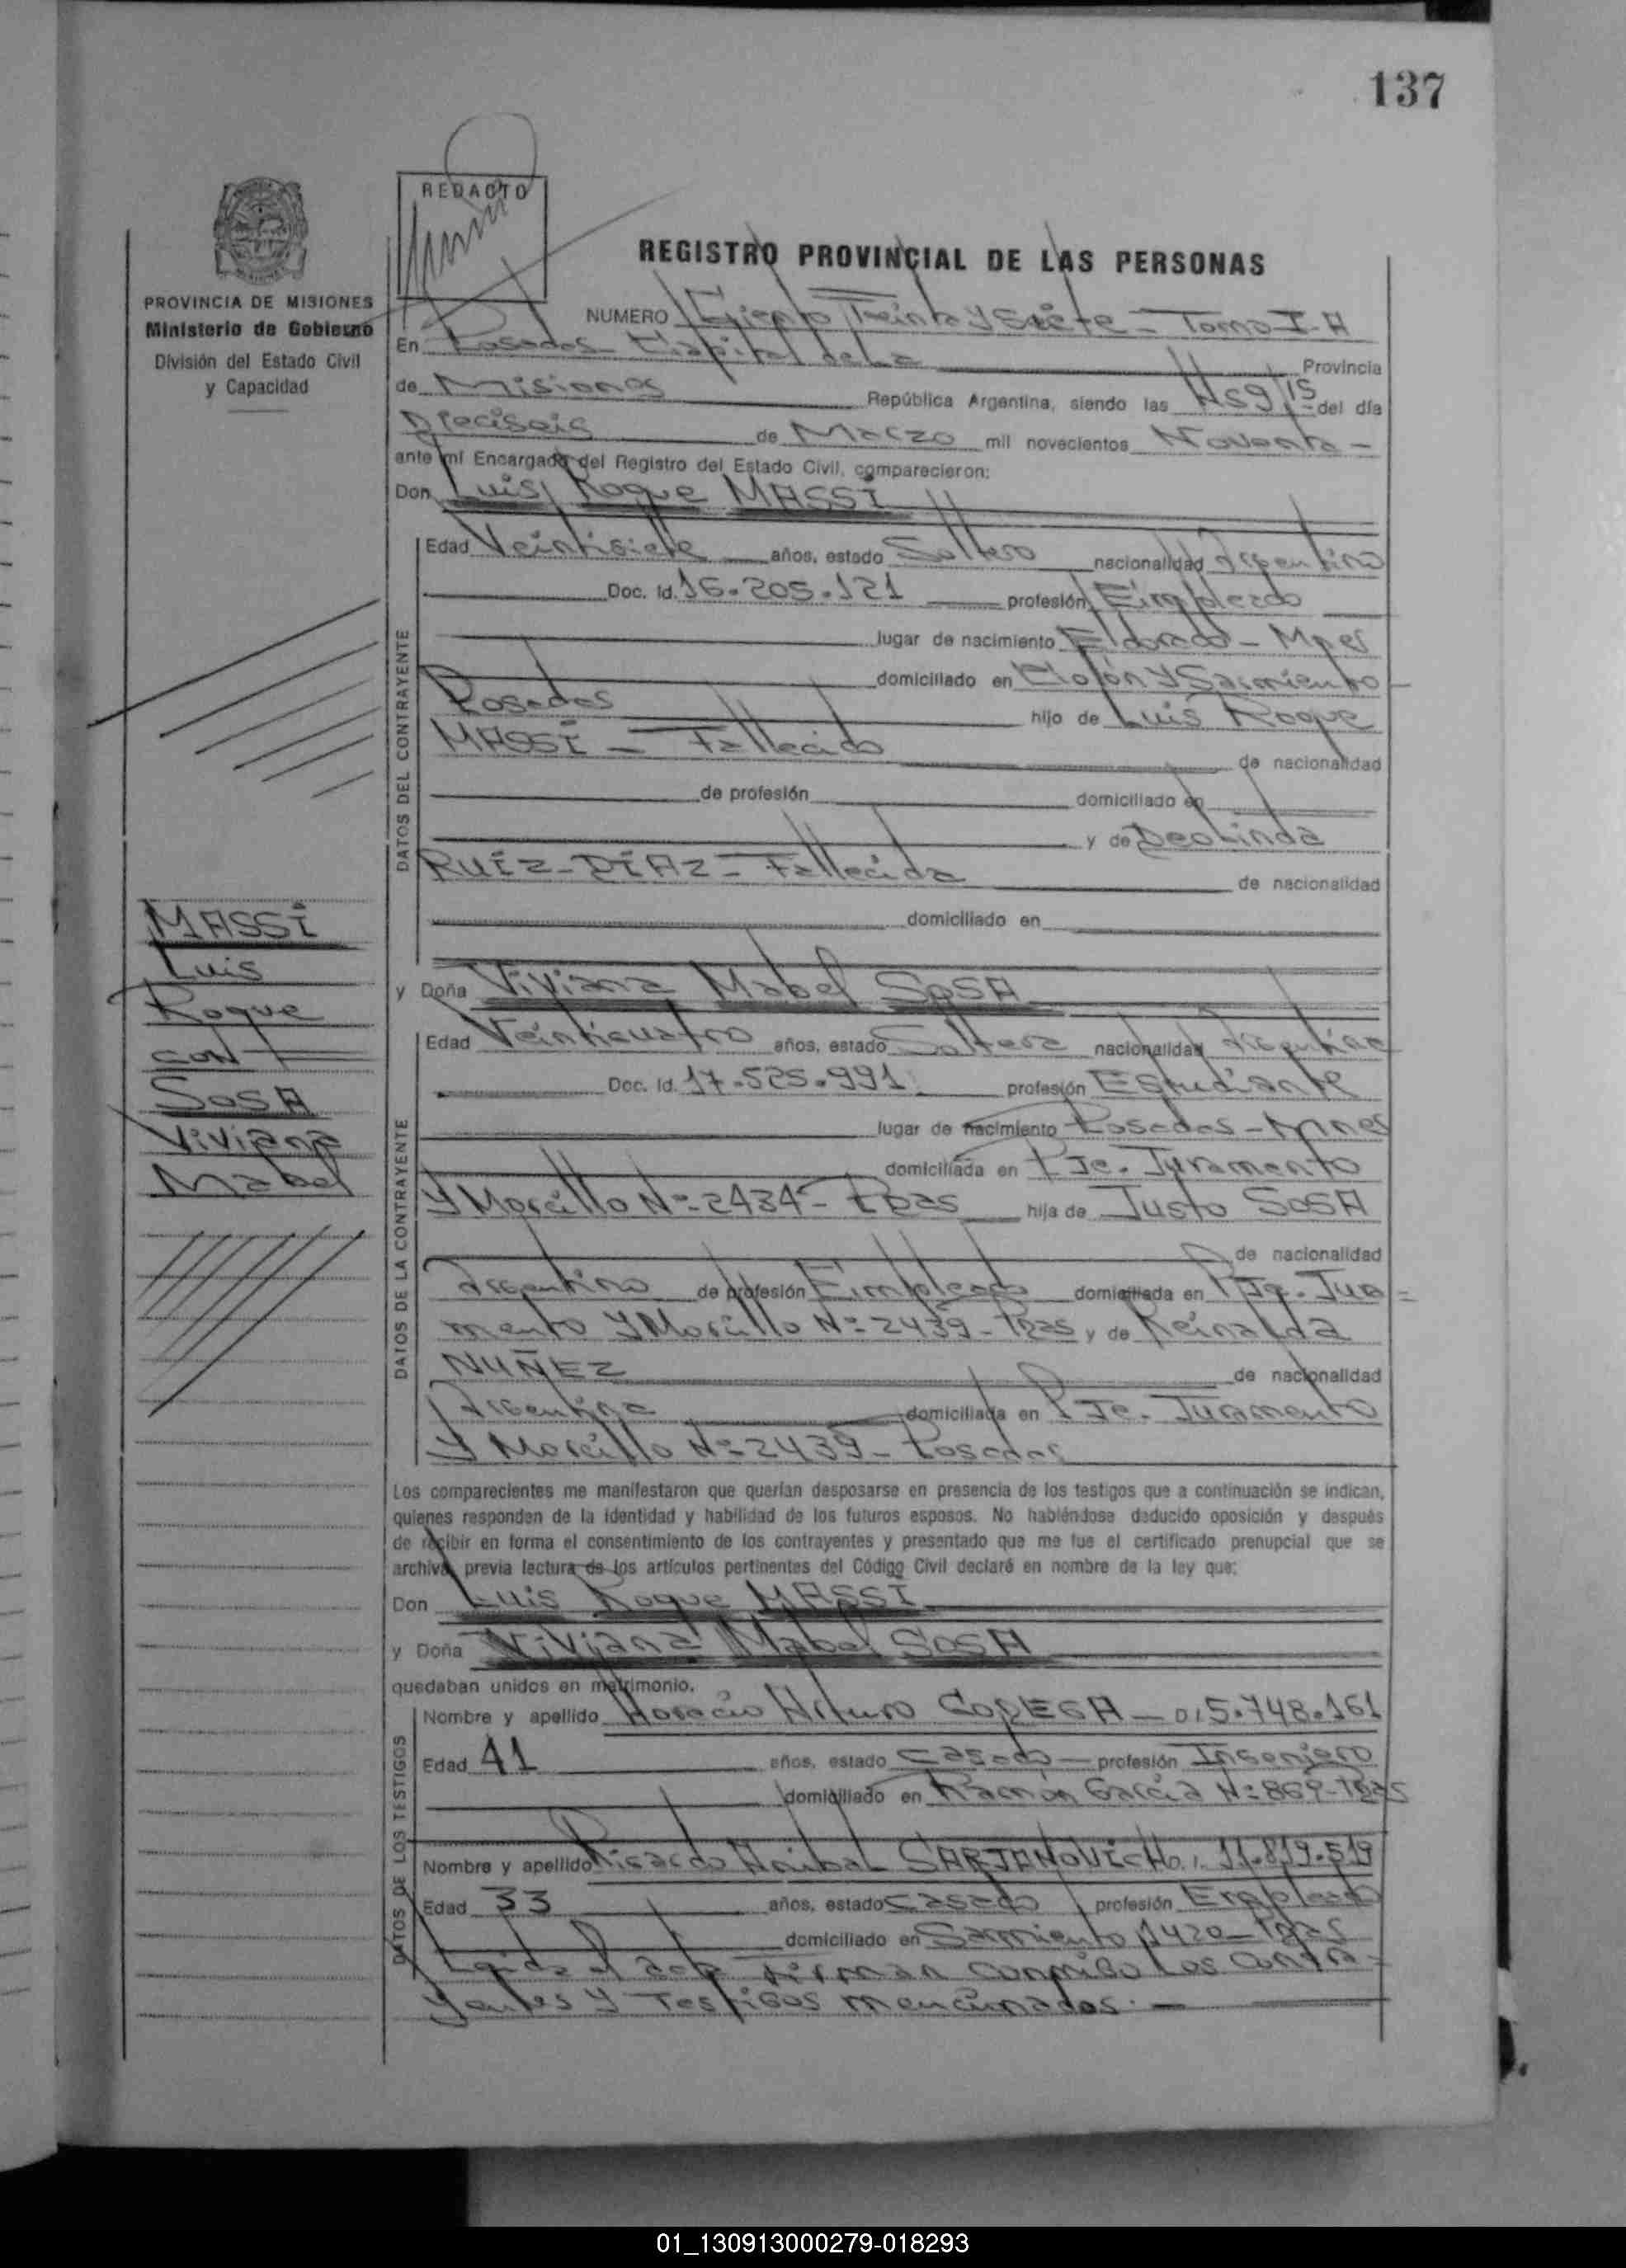 137
REDACTO
REGISTRO PROVINCIAL DE LAS PERSONAS
PROVINCIA DE MISIONES
Ministerio de Gobierno
División del Estado Civil
y Capacidad
NUMERO Ciento Treinta y Siete - Tomo I-A
En Posadas Capital de La Provincia
de Misiones República Argentina, siendo las Hs 9,15 del día
Dieciseis de Marzo mil novecientos Noventa -
ante mí Encargado del Registro del Estado Civil, comparecieron:
Don Luis Roque MASSI
DATOS DEL CONTRAYENTE
Edad Veintisiete años, estado Soltero nacionalidad Argentino
Doc. Id. 16.205.121 profesión Empleado
lugar de nacimiento Eldorado - Mnes
domiciliado en Colón y Sarmiento -
Posadas hijo de Luis Roque
MASSI - Fallecido de nacionalidad
de profesión domiciliado en
y de Deolinda
RUIZ-DIAZ - Fallecida de nacionalidad
domiciliado en
MASSI
Luis
Roque
CON
SOSA
Viviana
Mabel
y Doña Viviana Mabel SOSA
DATOS DE LA CONTRAYENTE
Edad Veinticuatro años, estado Soltera nacionalidad Argentina
Doc. Id. 17.525.991 profesión Estudiante
lugar de nacimiento Posadas - Mnes
domiciliada en Pje. Juramento
y Morcillo N= 2434 - Pdas hija de Justo SOSA
de nacionalidad
Argentino de profesión Empleado domiciliada en Pje. Jura =
mento y Morcillo N= 2439 - Pdas y de Reinalda
NUÑEZ de nacionalidad
Argentina domiciliada en Pje. Juramento
y Morcillo N= 2439 - Posadas
Los comparecientes me manifestaron que querían desposarse en presencia de los testigos que a continuación se indican,
quienes responden de la identidad y habilidad de los futuros esposos. No habiéndose deducido oposición y después
de recibir en forma el consentimiento de los contrayentes y presentado que me fue el certificado prenupcial que se
archiva, previa lectura de los artículos pertinentes del Código Civil declaré en nombre de la ley que:
Don Luis Roque MASSI
y Doña Viviana Mabel SOSA
quedaban unidos en matrimonio.
DATOS DE LOS TESTIGOS
Nombre y apellido Horacio Arturo - 5.748.161
Edad 41 años, estado Casado - profesión Ingeniero
domiciliado en Ramón García N= 869 - Pdas
Nombre y apellido Ricardo Anibal 11.819.519
Edad 33 años, estado Casado profesión Empleado
domiciliado en Sarmiento 1420 - Pdas
Leida el acta Firman conmigo Los Contra =
yentes y Testigos mencionados. -
01_130913000279-018293